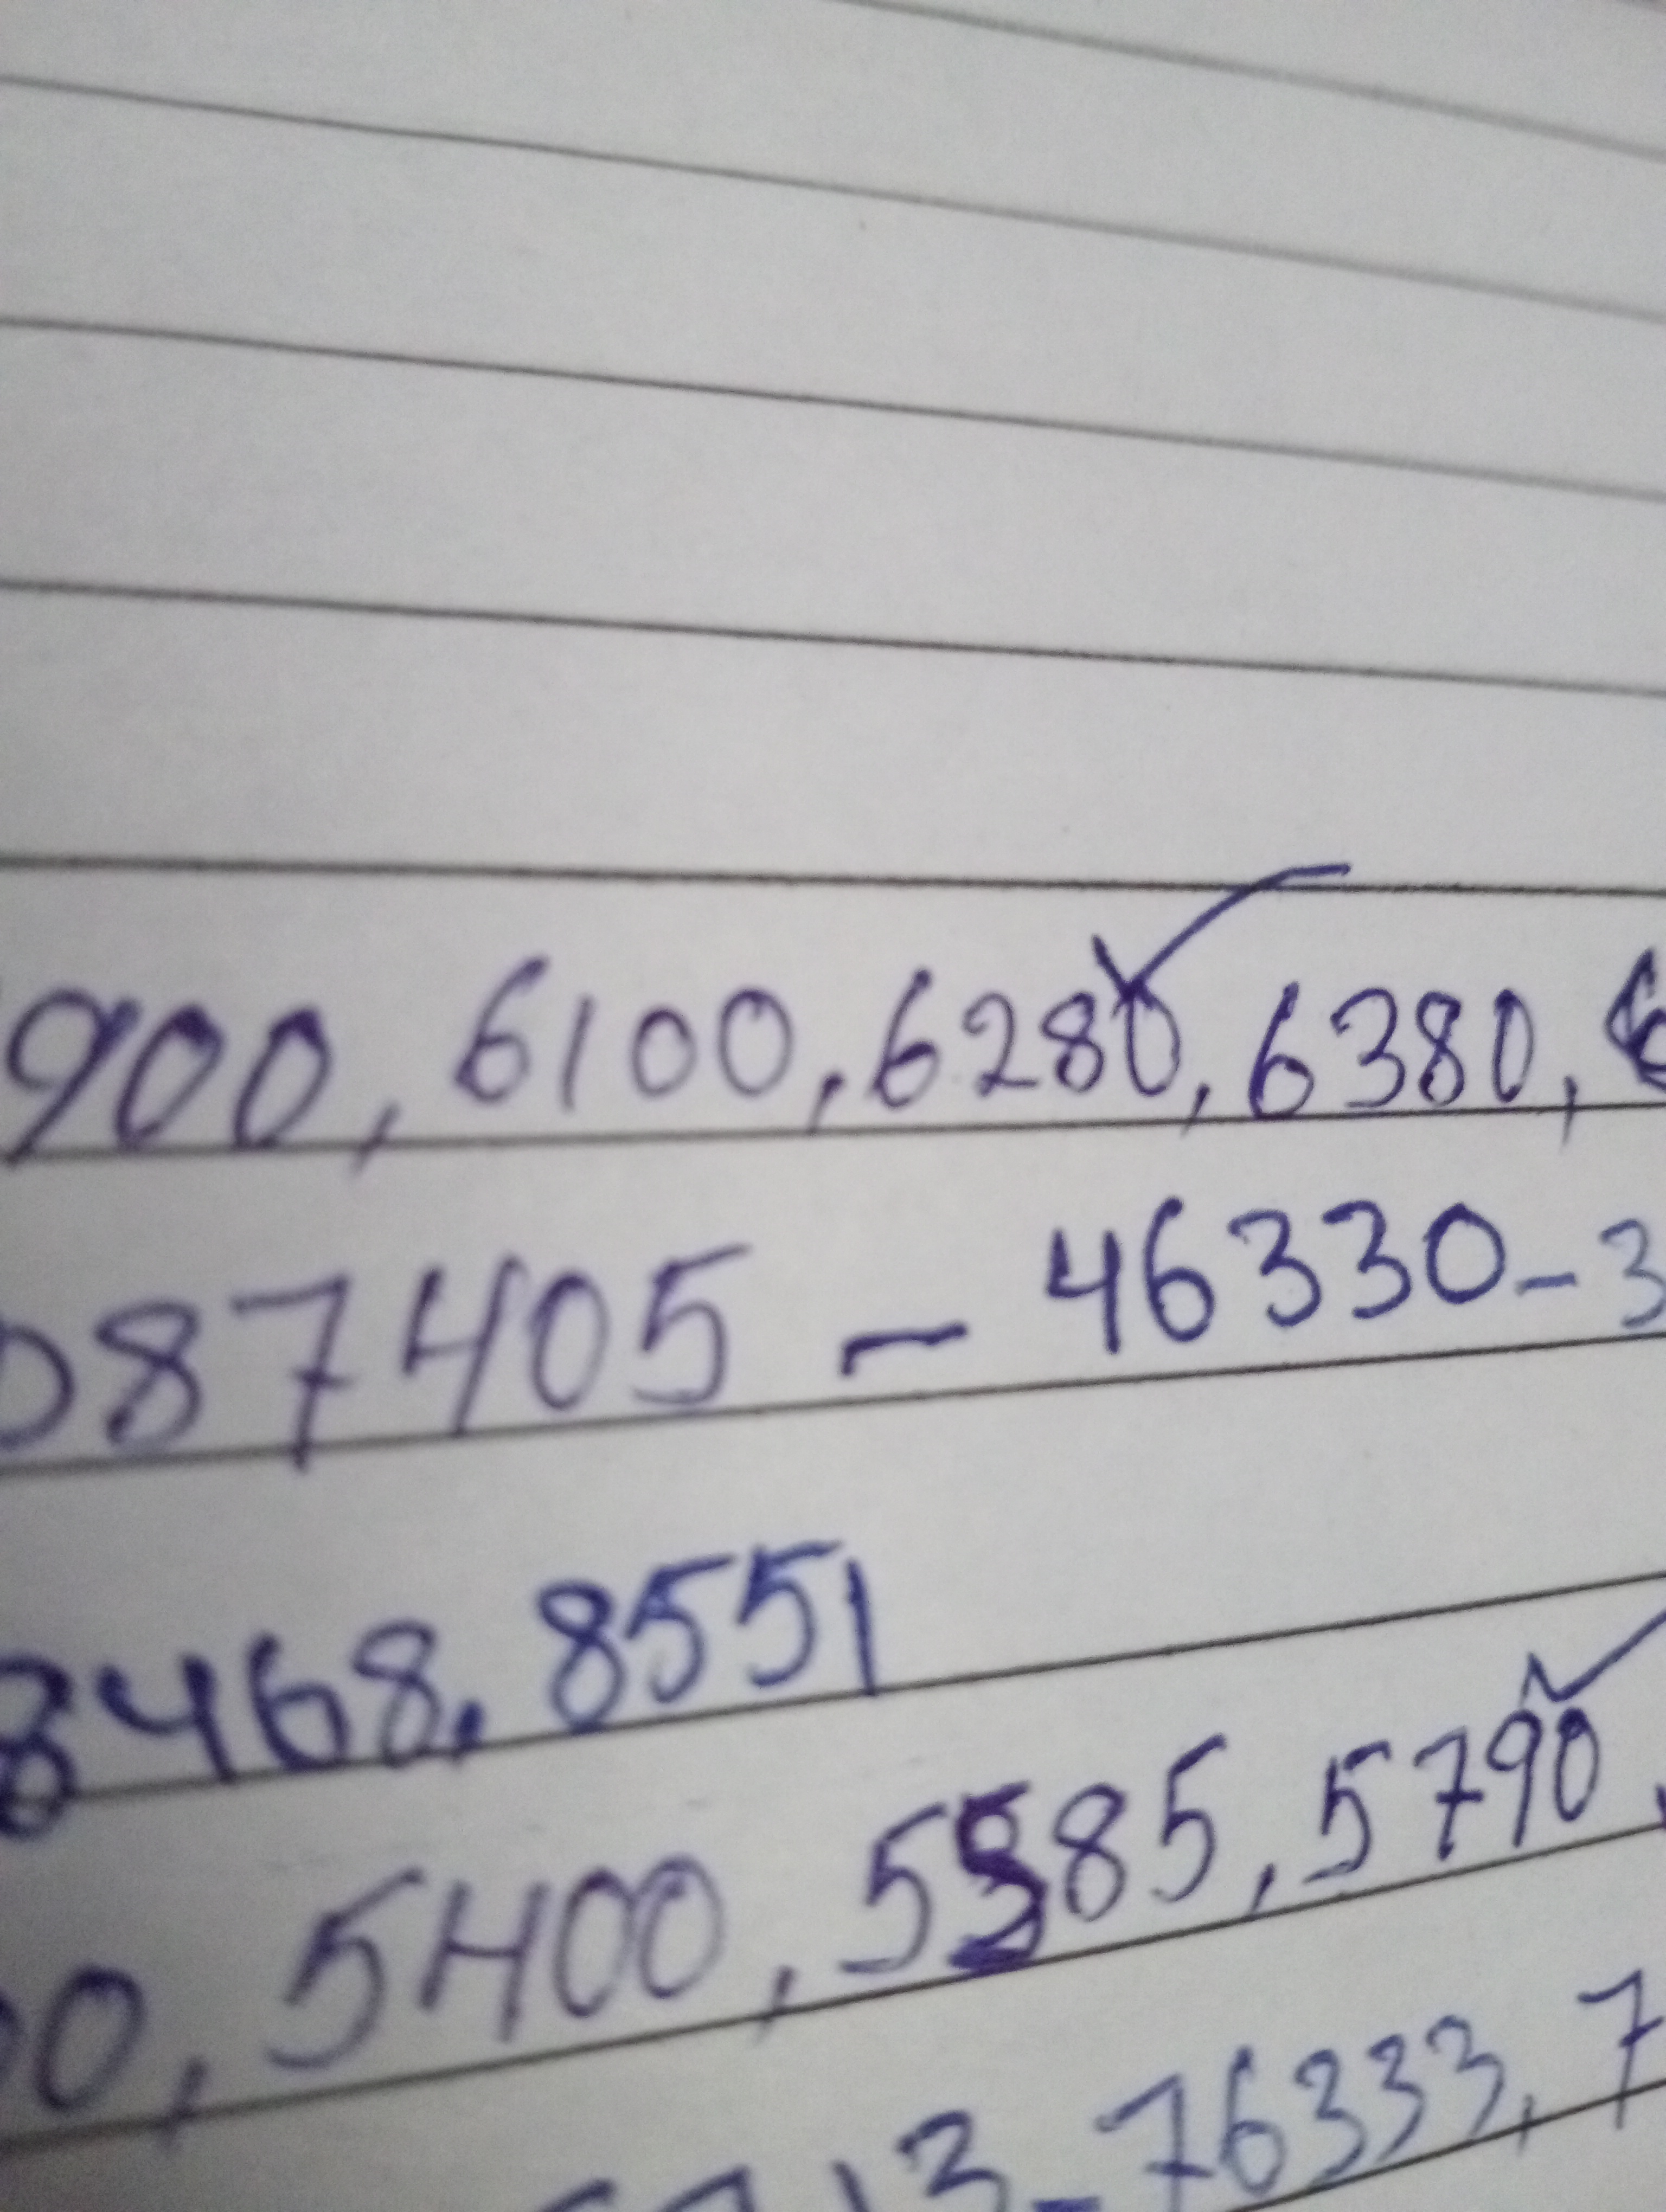 900, 6100, 6280, 6380,
87405 - 46330-3
8468, 8551
0, 5400, 5585, 5790,
13-76333, 7